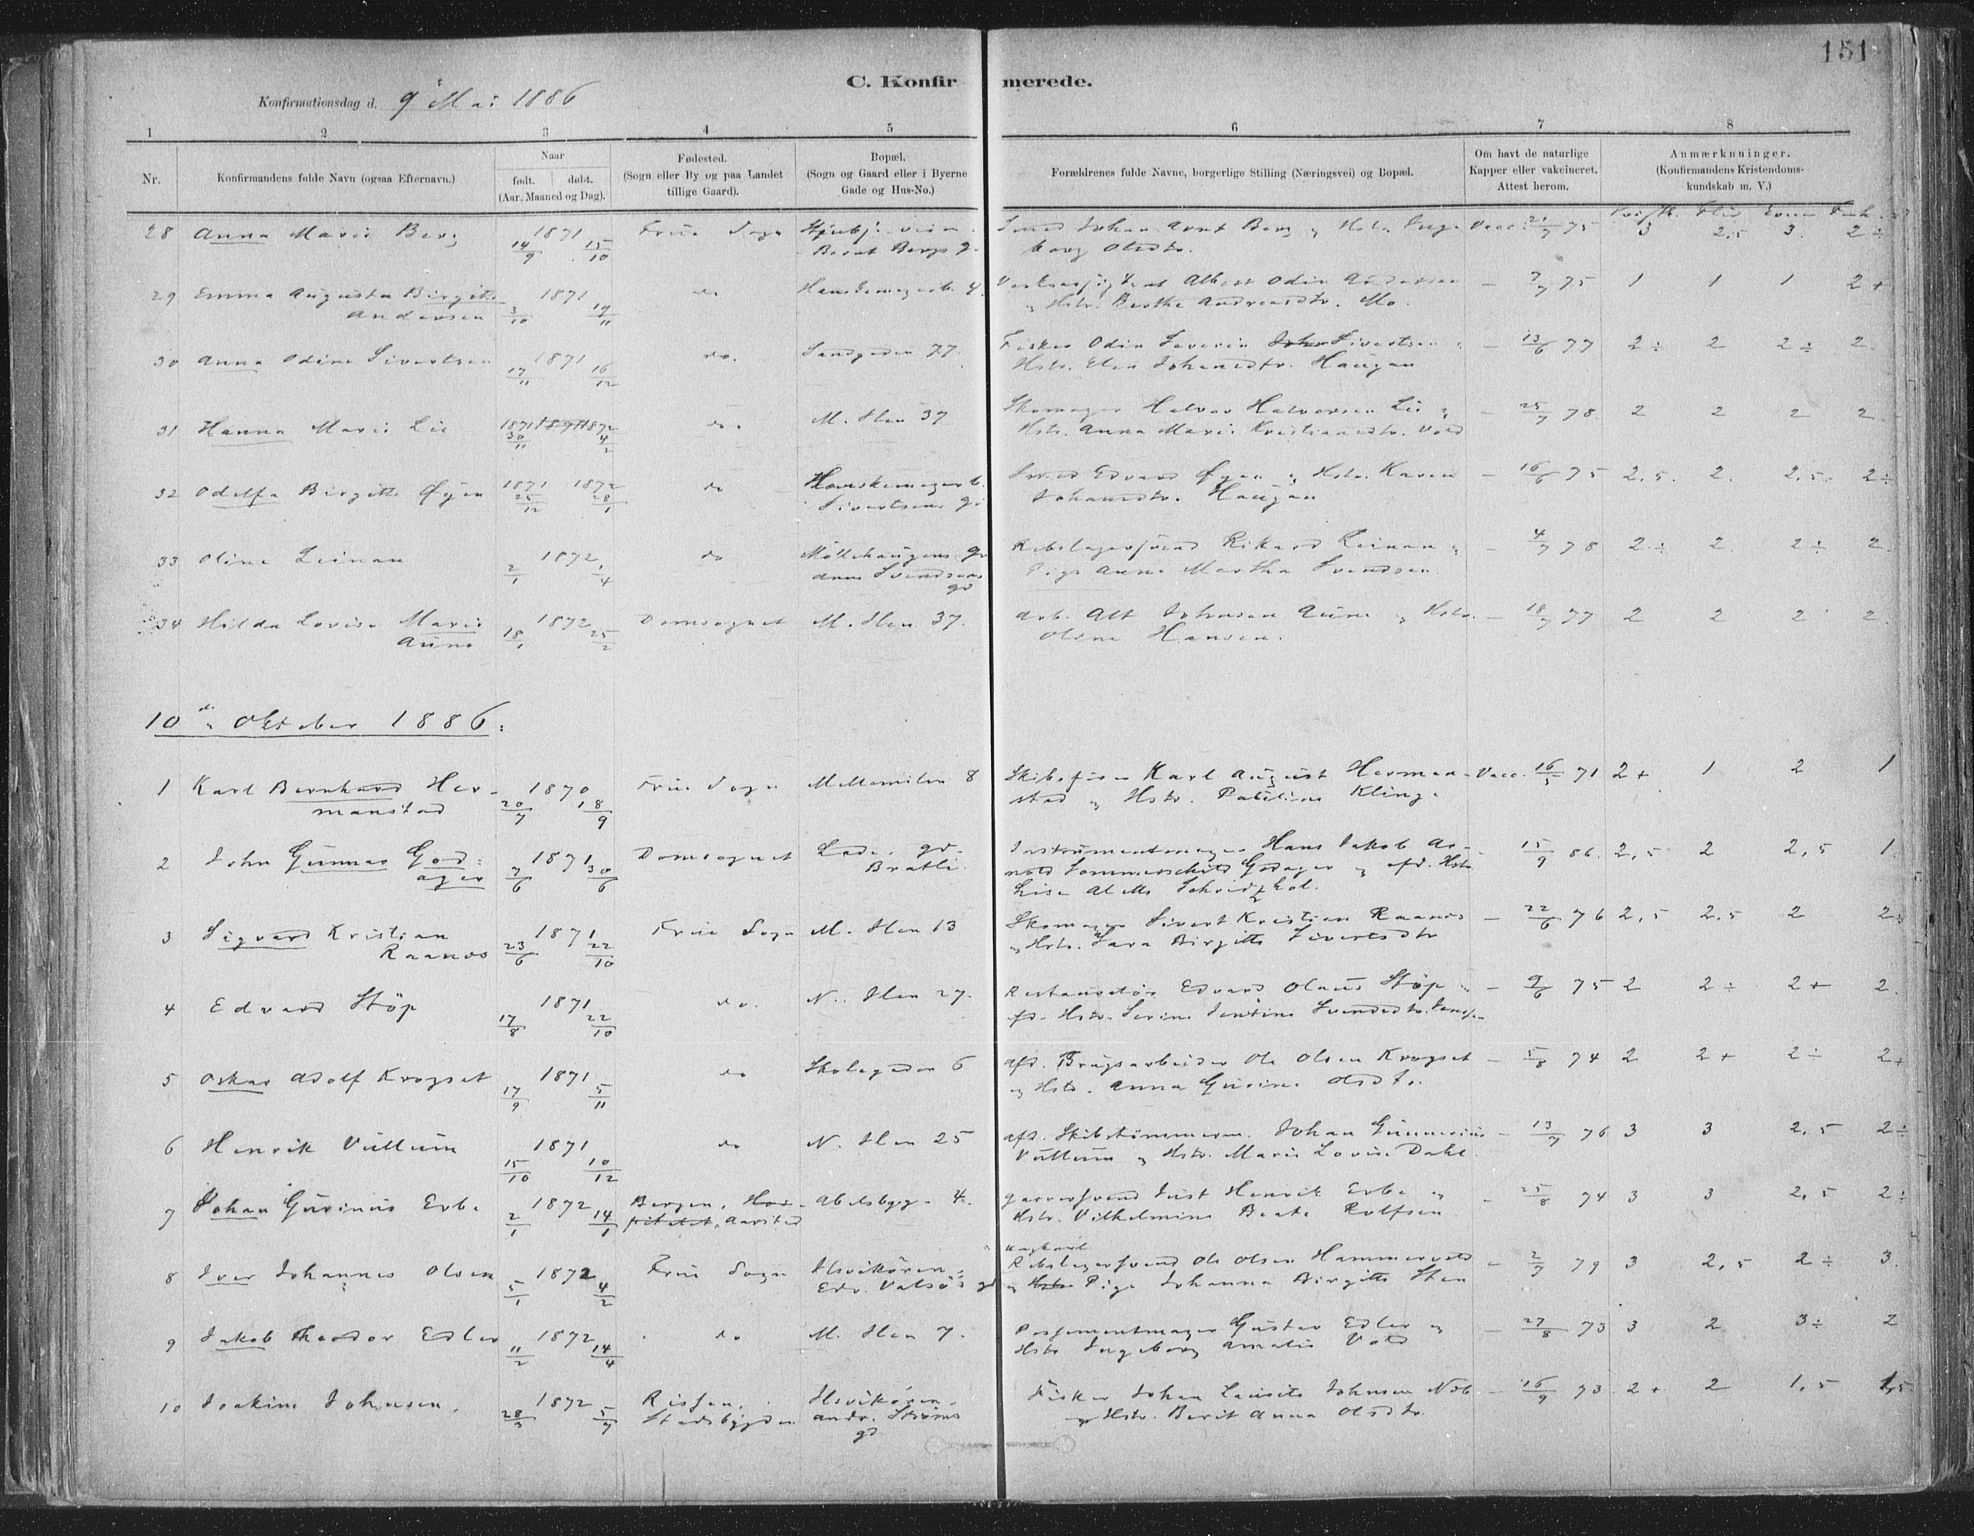 151
C. Konfirmerede.
Konfirmationsdag d. 9 Mai 1886
1 2 3 4 5 6 7 8
Nr.
Konfirmandens fulde Navn (ogsaa Efternavn.)
Naar
født. døbt.
(Aar, Maaned og Dag).
Fødested.
(Sogn eller By og paa Landet
tillige Gaard).
Bopæl.
(Sogn og Gaard eller i Byerne
Gade og Hus-No.)
Forældrenes fulde Navne, borgerlige Stilling (Næringsvei) og Bopæl.
Om havt de naturlige
Kapper eller vakcineret.
Attest herom.
Anmærkninger.
(Konfirmandens Kristendoms-
kundskab m. V.)
28 Anna Marie Berg 1871 14/9 15/10 Frue Sogn Smed Johan Arnt Berg og Hstr. Inge Vacc. 21/7 75 3 2,5 3. 2÷
borg Olsdtr.
29 Emma Augusta Birgitte 1871 do Albert Odin Andersen – 7/7 75 1 1 1 2+
Andersen 3/10 19/11 og Hstr. Berthe Andreasdtr. Mo.
30 Anna Odine Sivertsen 1871 do. Sandgaden 77. Fisker Odin Severin Sivertsen – 13/6 77 2÷ 2 2÷ 2.
17/11 16/12 Hstr. Elen Johansdtr. Haugan
31 Hanna Marie Lie 1871 1872 do. M. Ilen 37 Skomager Halvor Halvorsen Lie og – 25/7 78 2 2 2 2
30/11 4/2 Hstr. Anna Marie Kristiansdtr. Vold
32 Odelfa Birgitte Øyen 1871 1872 do Smed Edvard Øyen og Hstr. Karen – 16/6 75 2,5. 2. 2,5. 2÷
25/12 28/1 Sivertsens gd Johansdtr. Haugan
33 Oline Leinan 1872 do Møllehaugens gd Rebslagersvend Rikard Leinan og – 4/7 78 2÷ 2. 2÷ 2.
2/1 1/4 Svendsens Pige Anne Martha Svendsen
gd
34 Hilda Lovise Marie 1872 Domsognet M. Ilen 37. Arb. Johnsen Aune og Hstr. – 18/7 77 2 2 2 2.
Aune 18/1 25/2 Oline Hansen.
10de Oktober 1886.
1 Karl Bernhard Her- 1870 Frue Sogn Mellemilen 8 Skibsfører Karl August Herman- Vacc. 16/5 71 2+ 1 2 1
manstad 20/7 18/9 stad og Hstr. Kling.
2 John Gunnar God- 1871 Domsognet Lade. gd. Instrumentmager Hans Jakob Ar- 15/9 86. 2,5 2 2,5 1
ager 7/6 30/6 Bratli. nold Sommerschild Godager og afd. Hstr.
3 Sigvard Kristian 1871 Frue Sogn M. Ilen 13 Skomager Sivert Kristian Raanes – 22/6 76 2,5 2,5 2 2÷
Raanes 23/6 22/10 og Hstr. Sara Birgitte Sivertsdtr
4 Edvard Støp 1871 do. N. Ilen 27. Restauratør Edvard Olaus Støp og – 9/6 75 2 2÷ 2+ 2.
17/8 22/10 fr. Hstr. Serine Jentine Svendsdtr.
5 Oskar Adolf Krogset 1871 do Skolegaden 6 afd. Brugsarbeider Ole Olsen Krogset – 5/8 74 2 2+ 2÷ 2+
17/9 5/11 og Hstr. Anna Gurine Olsdtr.
6 Henrik Vullum 1871 do N. Ilen 25 afd. Skibstømmerm. Johan Gunnerius – 13/7 76 3 3 2,5 2÷
15/10 10/12 Vullum og Hstr. Marie Lovise Dahl.
7 Johan Gurinus Erbe 1872 Bergen, Hos- Abelsbyg. 4. Garversvend Just Henrik Erbe og – 25/8 74 3 3 2,5 2÷
2/1 14/1 pitalet, Aarstad Hstr. Vilhelmine Beate Rolfsen
ungkarl
8 Iver Johannes Olsen 1872 Frue Sogn Ilsvikøren, Rebslagersvend Ole Olsen Hammervold – 2/7 79 3 2,5 2÷ 3.
5/1 4/2 Edv. Valsøs gd og Hstr. Pige Johanna Birgitte Sten
9 Jakob Theodor Edler 1872 do M. Ilen 7. Possementmager Gustav Edler og – 27/8 73 3 2 3÷ 2
11/2 14/4 Hstr Ingeborg Amalie Vold
10 Joakim Johnsen. 1872 Rissen, Ilsvikøren. Fisker Johan Lausite Johnsen – 16/9 73 2+ 2 1,5 1,5
28/3 5/7 Stadsbygden og Hstr. Berit Anna Olsdtr.
gd